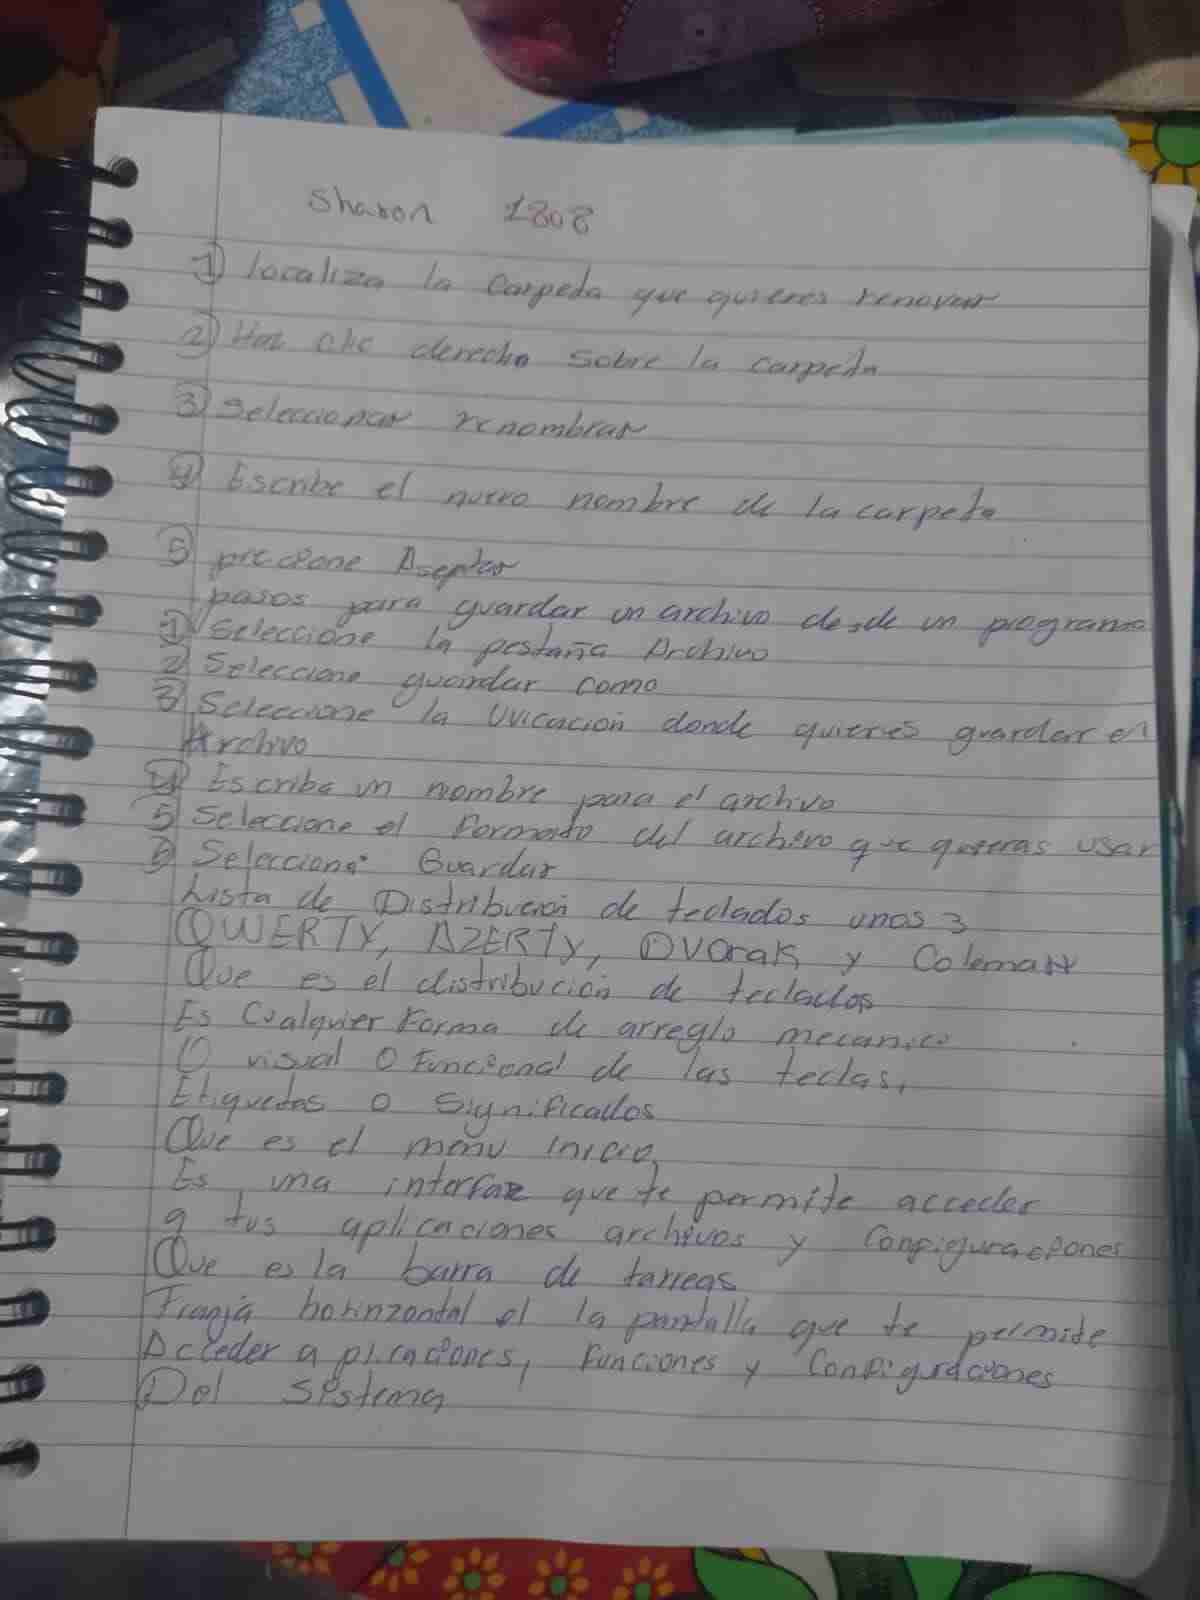 Sharon 1808
1 localiza la carpeda que quieres renovar
2 Haz clic derecho sobre la carpeta
3 Seleccionar renombrar
4 Escribe el nuevo nombre de la carpeta
5 precione Aseptar
pasos para guardar un archivo desde un programa
1 Seleccione la pestaña Archivo
2 Seleccione guardar como
3 Seleccione la Uvicación donde quieres guardar el
Archivo
4 Escriba un nombre para el archivo
5 Seleccione el Formato del archivo que quieras usar
6 Seleccione Guardar
Lista de Distribución de teclados unos 3
QWERTY, AZERTY, Dvorak y Colemak
Que es el distribución de teclados
Es Cualquier Forma de arreglo mecanico
O visual O Funcional de las teclas,
Etiquetas o Significados
Que es el menu inicio
Es una interfaz que te permite acceder
a tus aplicaciones archivos y Configuraciones
Que es la barra de tareas
Franja horinzontal el la pantalla que te permite
Acceder a plicaciones, Funciones y Configuraciones
Del Sistema